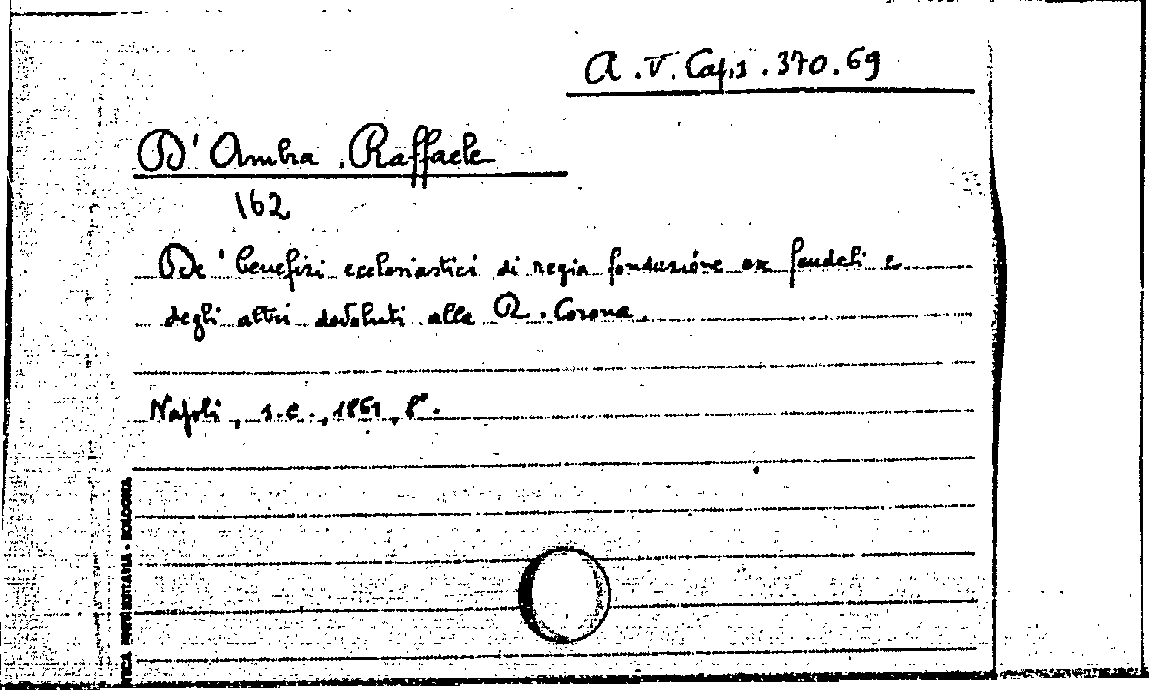 A.V. Cap.1.370.69
D'Ambra, Raffaele
162
De' benefizi ecclesiastici di regia fondazione ex feudali e
degli altri devoluti alla R. Corona.
Napoli, s.e., 1861, 8°.
BOLOGNA